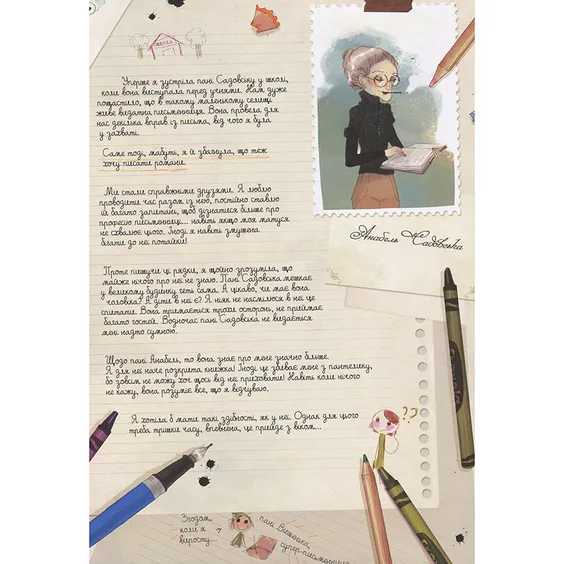 школа
Уперше я зустріла пані Садовську у школі,
коли вона виступала перед учнями. Нам дуже
пощастило, що в такому маленькому селищі
живе видатна письменниця. Вона провела для
нас декілька вправ із письма, від чого я була
у захваті.
Саме тоді, мабуть, я й збагнула, що теж
хочу писати романи.
Ми стали справжніми друзями. Я люблю
проводити час разом із нею, постійно ставлю
їй багато запитань, щоб дізнатися більше про
професію письменниці... навіть якщо моя матуся
не схвалює цього. Іноді я навіть змушена
бігати до неї потайки!
Проте пишучи ці рядки, я щойно зрозуміла, що
майже нічого про неї не знаю. Пані Садовська мешкає
у великому будинку геть сама. А цікаво, чи має вона
чоловіка? А діти в неї є? Я ніяк не насмілюся в неї це
спитати. Вона тримається трохи осторонь, не приймає
багато гостей. Водночас пані Садовська не видається
мені надто сумною.
Щодо пані Анабель, то вона знає про мене значно більше.
Я для неї наче розкрита книжка! Іноді це збиває мене з пантелику,
бо зовсім не можу хоч щось від неї приховати! Навіть коли нічого
не кажу, вона розуміє все, що я відчуваю.
Я хотіла б мати такі здібності, як у неї. Однак для цього
треба трішки часу, впевнена, це прийде з віком...
Анабель Садовська
??
Згодом,
коли я
виросту...
пані Вишенька,
супер-письменниця